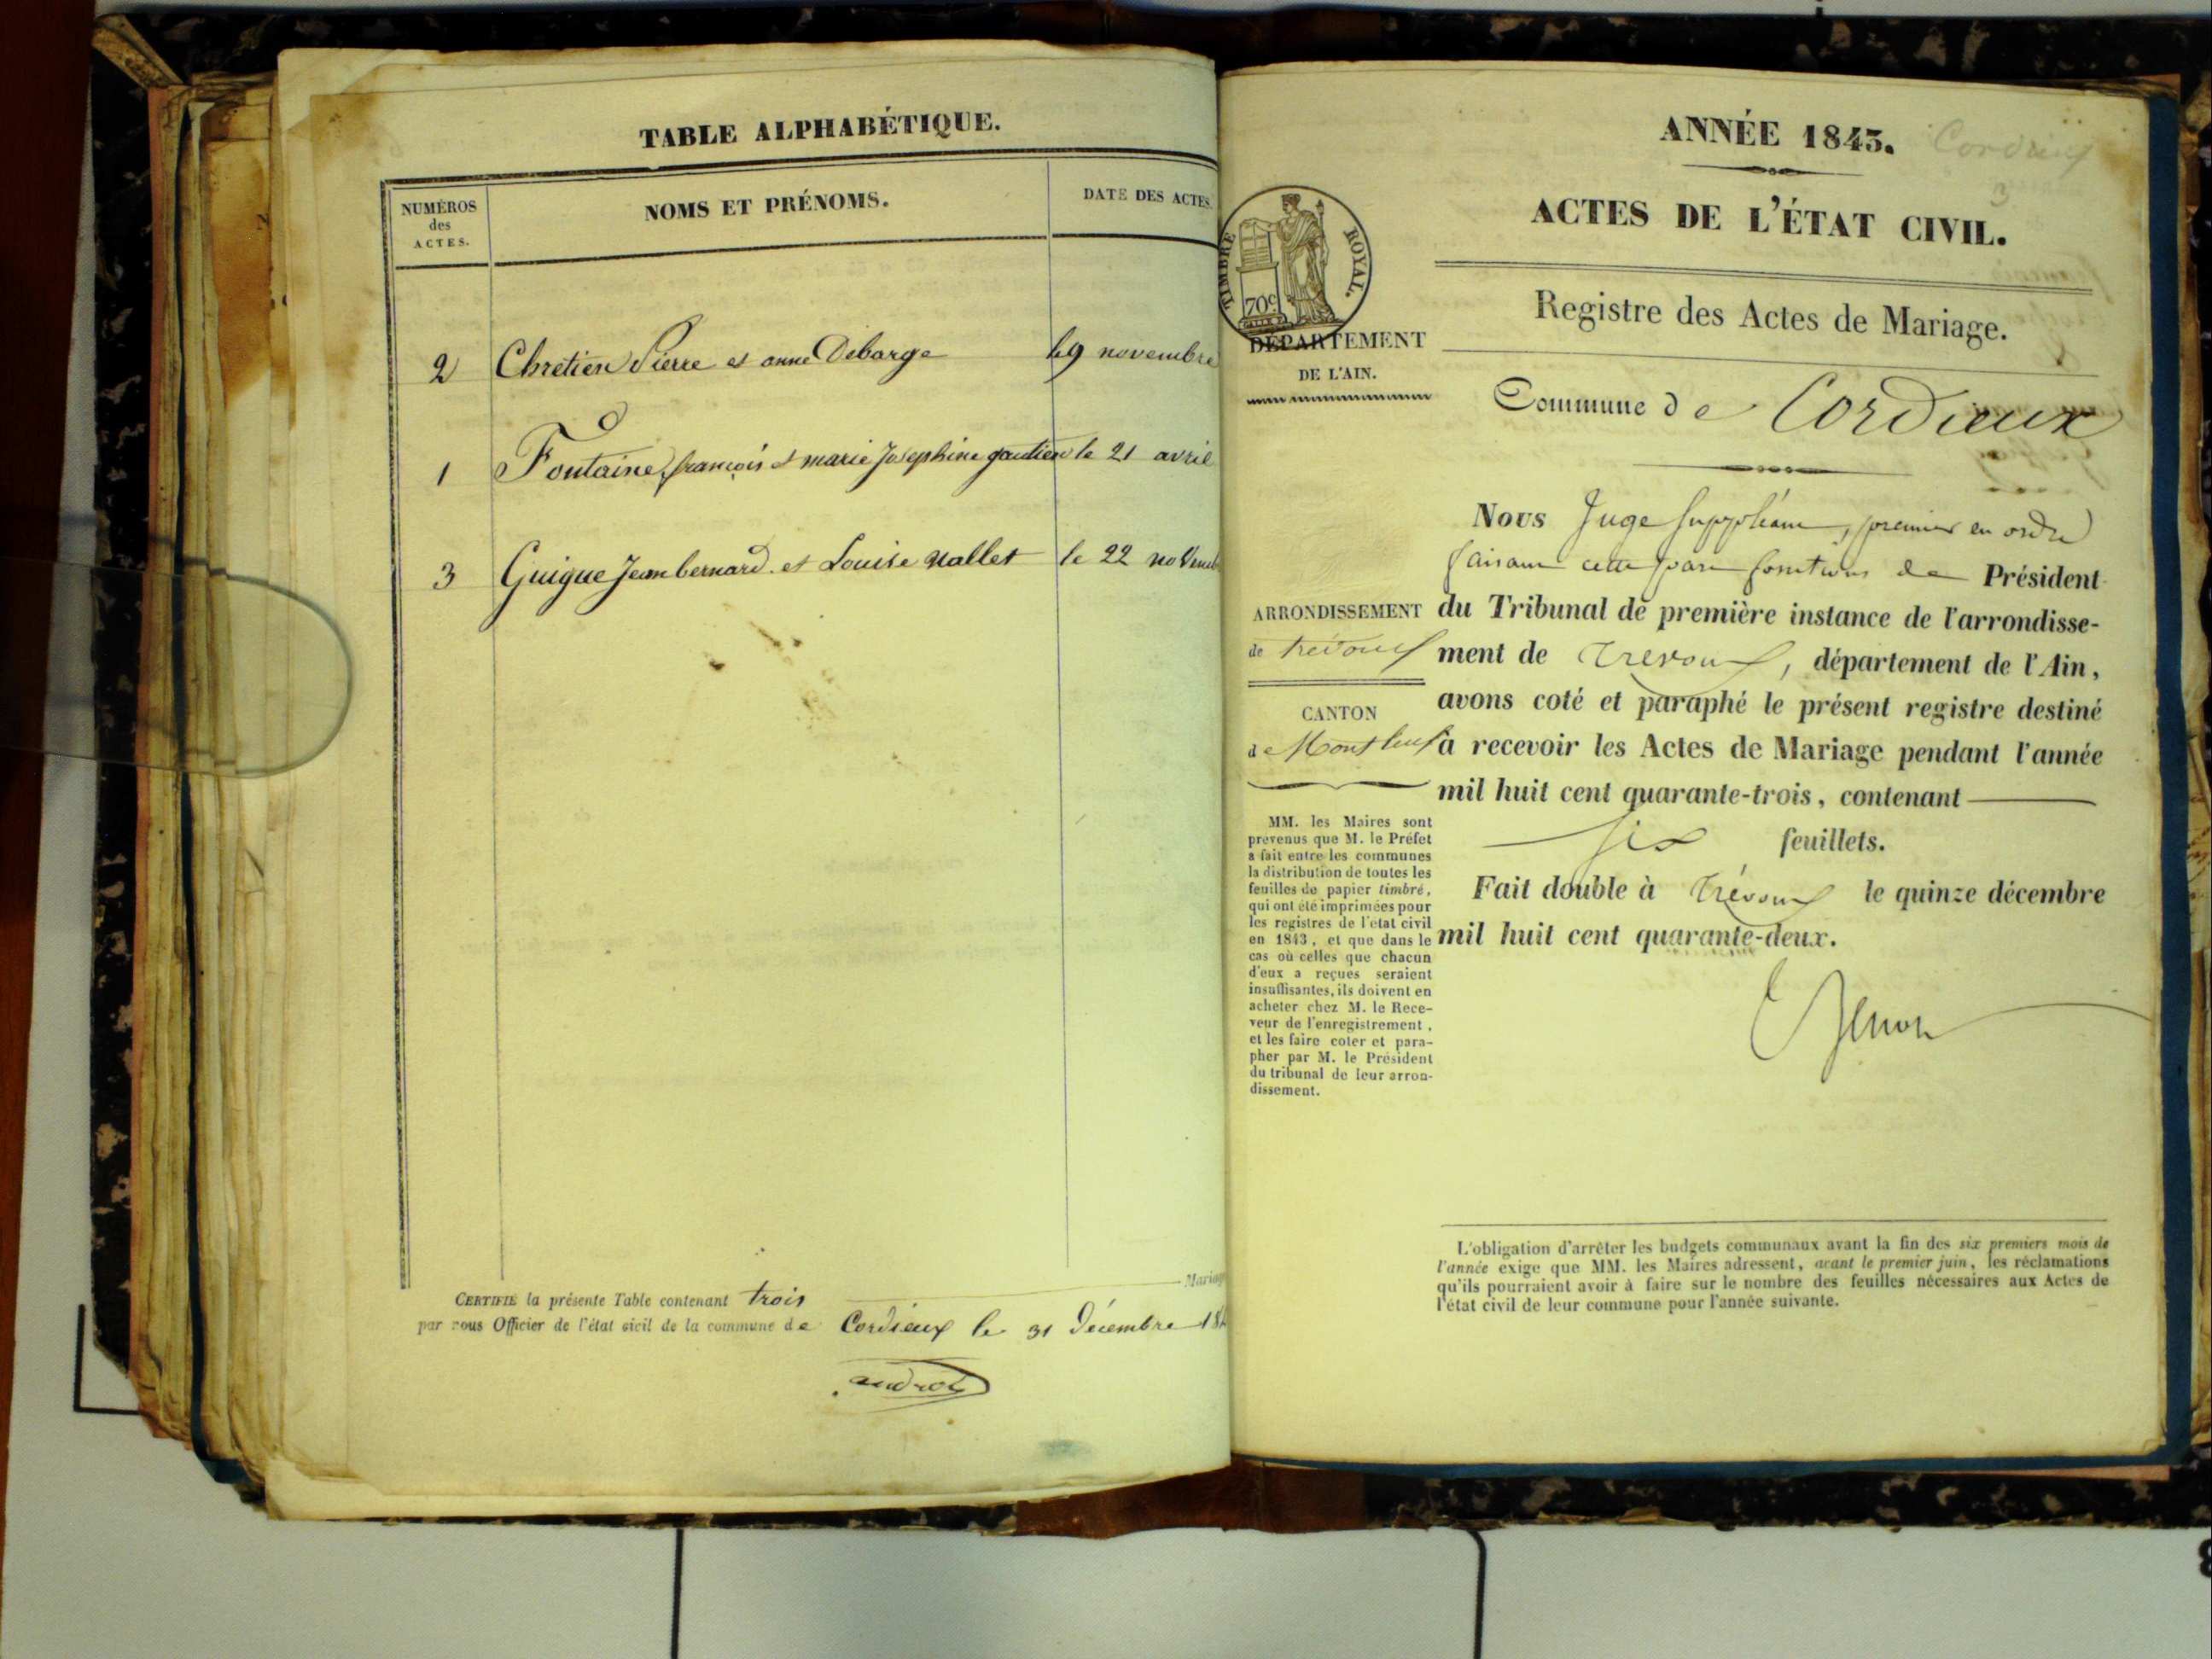 TABLE ALPHABÉTIQUE.
NUMÉROS
des
ACTES.
NOMS ET PRÉNOMS.
DATE DES ACTES.
2 Chretien Pierre et anne Debarge le 9 novembre
1 Fontaine françois et marie Josephine gautier le 21 avril
3 Guigue Jean bernard et Louise Nallet le 22 novemb
Mariag
CERTIFIÉ la présente Table contenant trois
par nous Officier de l'état civil de la commune de Cordieux le 31 Décembre 184
ANNÉE 1843.
Cordieux
3
ACTES DE L'ÉTAT CIVIL.
TIMBRE ROYAL.
70c
DÉPARTEMENT
DE L'AIN.
Registre des Actes de Mariage.
Commune de Cordieux
Nous Juge Suppléant, premier en ordre
faisant cette part fonctions de Président
du Tribunal de première instance de l'arrondisse-
ment de Trevoux, département de l'Ain,
avons coté et paraphé le présent registre destiné
à recevoir les Actes de Mariage pendant l'année
mil huit cent quarante-trois, contenant
six feuillets.
Fait double à Trévoux le quinze décembre
mil huit cent quarante-deux.
ARRONDISSEMENT
de trévoux
CANTON
de Montluel
MM. les Maires sont
prévenus que M. le Préfet
a fait entre les communes
la distribution de toutes les
feuilles de papier timbré,
qui ont été imprimées pour
les registres de l'état civil
en 1843, et que dans le
cas où celles que chacun
d'eux a reçues seraient
insuffisantes, ils doivent en
acheter chez M. le Rece-
veur de l'enregistrement,
et les faire coter et para-
pher par M. le Président
du tribunal de leur arron-
dissement.
L'obligation d'arrêter les budgets communaux avant la fin des six premiers mois de
l'année exige que MM. les Maires adressent, avant le premier juin, les réclamations
qu'ils pourraient avoir à faire sur le nombre des feuilles nécessaires aux Actes de
l'état civil de leur commune pour l'année suivante.